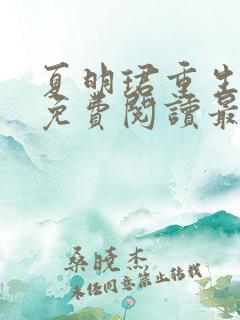 夏明珺重生
免費閱讀最
桑曉杰
未经同意禁止转载